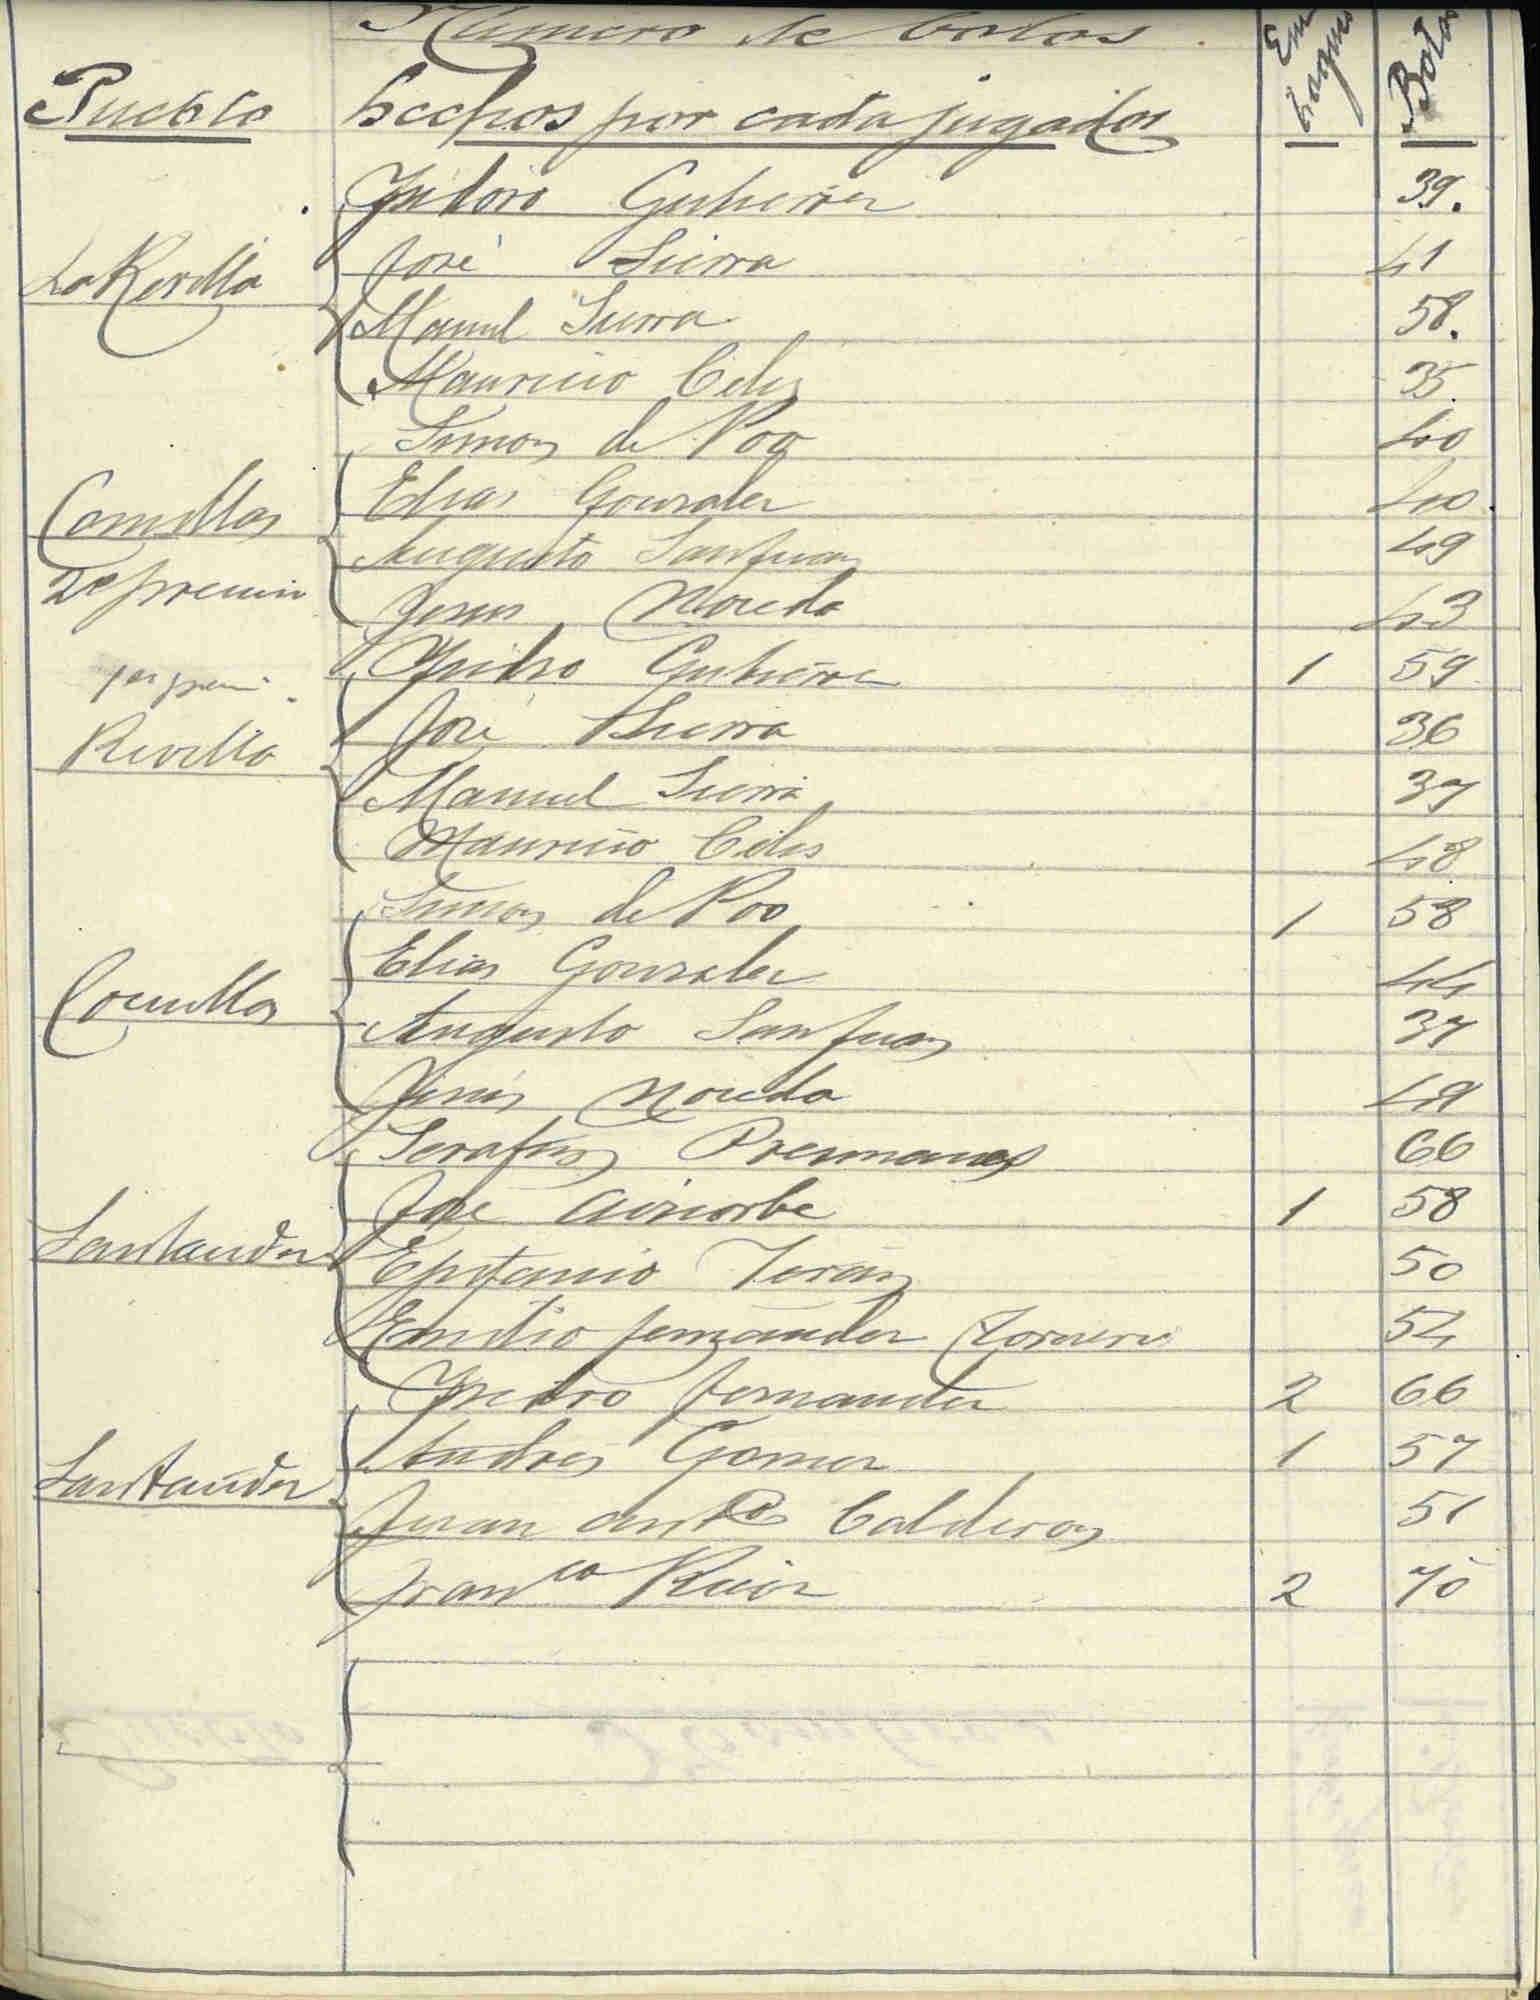 Número de bolos Em
Pueblo hechos por cada jugador boque Bolos
Ysidoro Gutierrez 39.
José Sierra 41
La Revilla
Manuel Sierra 58.
Mauricio Celis 35.
Simon de Poo 40
Comillas Elias Gonzalez 40.
Augusto Sanjuan 49
2º premio Jesus Noreda 43
Ysidro Gutierrez 1 59
1er premi
José Sierra 36
Revilla Manuel Sierra 37
Mauricio Celis 48
Simon de Poo 1 58
Elias Gonzalez 44
Comillas Augusto Sanjuan 37
Jesús Noreda 49
Serafin Presmanes 66
José 1 58
Santander Epifanio Terán 50
Emilio fernzandez 54
Ysidro fernandez 2 66
Andres Gomez 1 57
Santander Juan antº Calderon 51
franco Ruiz 2 70